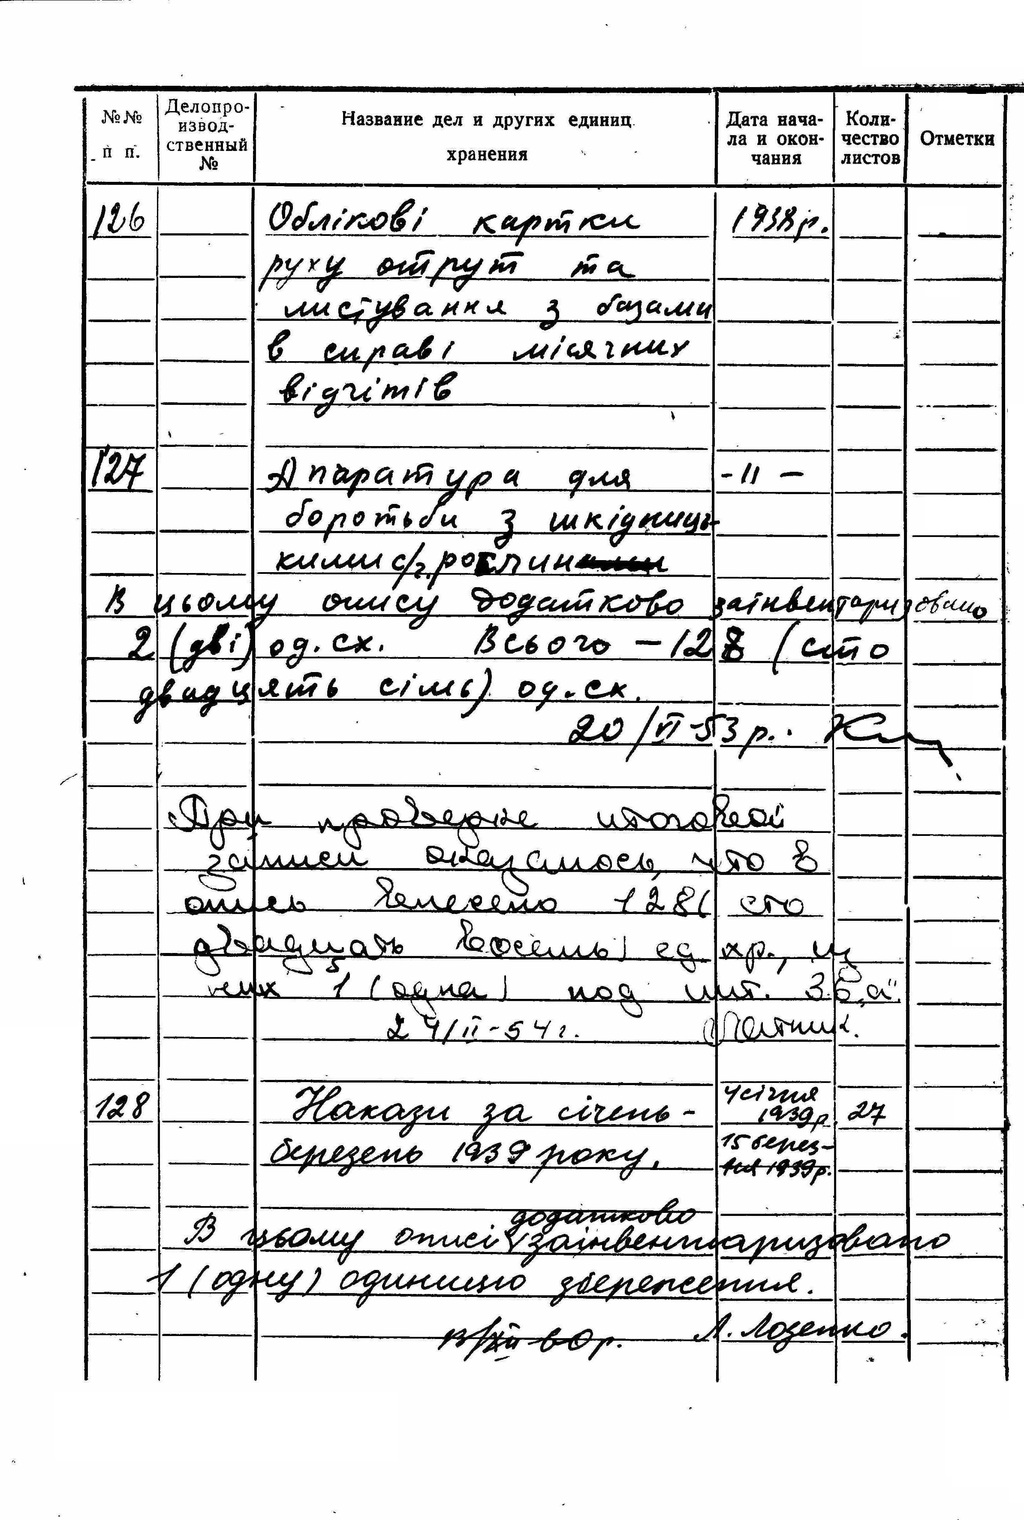 №№ п п.
Делопро-
извод-
ственный
№
Название дел и других единиц
хранения
Дата нача-
ла и окон-
чания
Коли-
чество
листов
Отметки
126 Облікові картки 1938 р.
руху отрут та
листування з базами
в справі місячних
відчітів
127 Апаратура для -11-
боротьби з шкідниць-
кими с/г. рослин
В цьому опису додатково заінвентаризовано
2 (дві) од. сх. Всього – 128 (сто
двадцять сімь) од. сх.
20/VI-53 р.
При проверке итоговой
записи оказалось, что в
опись внесено 128 (сто
двадцать восемь) ед. хр., из
них 1 (одна) под лит. 36 "а".
24/II-54 г.
128 Накази за січень- 4 січня 1939 р. 27
березень 1939 року. 15 берез-
ня 1939 р.
В цьому описі додатково заінвентаризовано
1 (одну) одиницю збереження.
13/XII-60 р. Л. Лозенко.